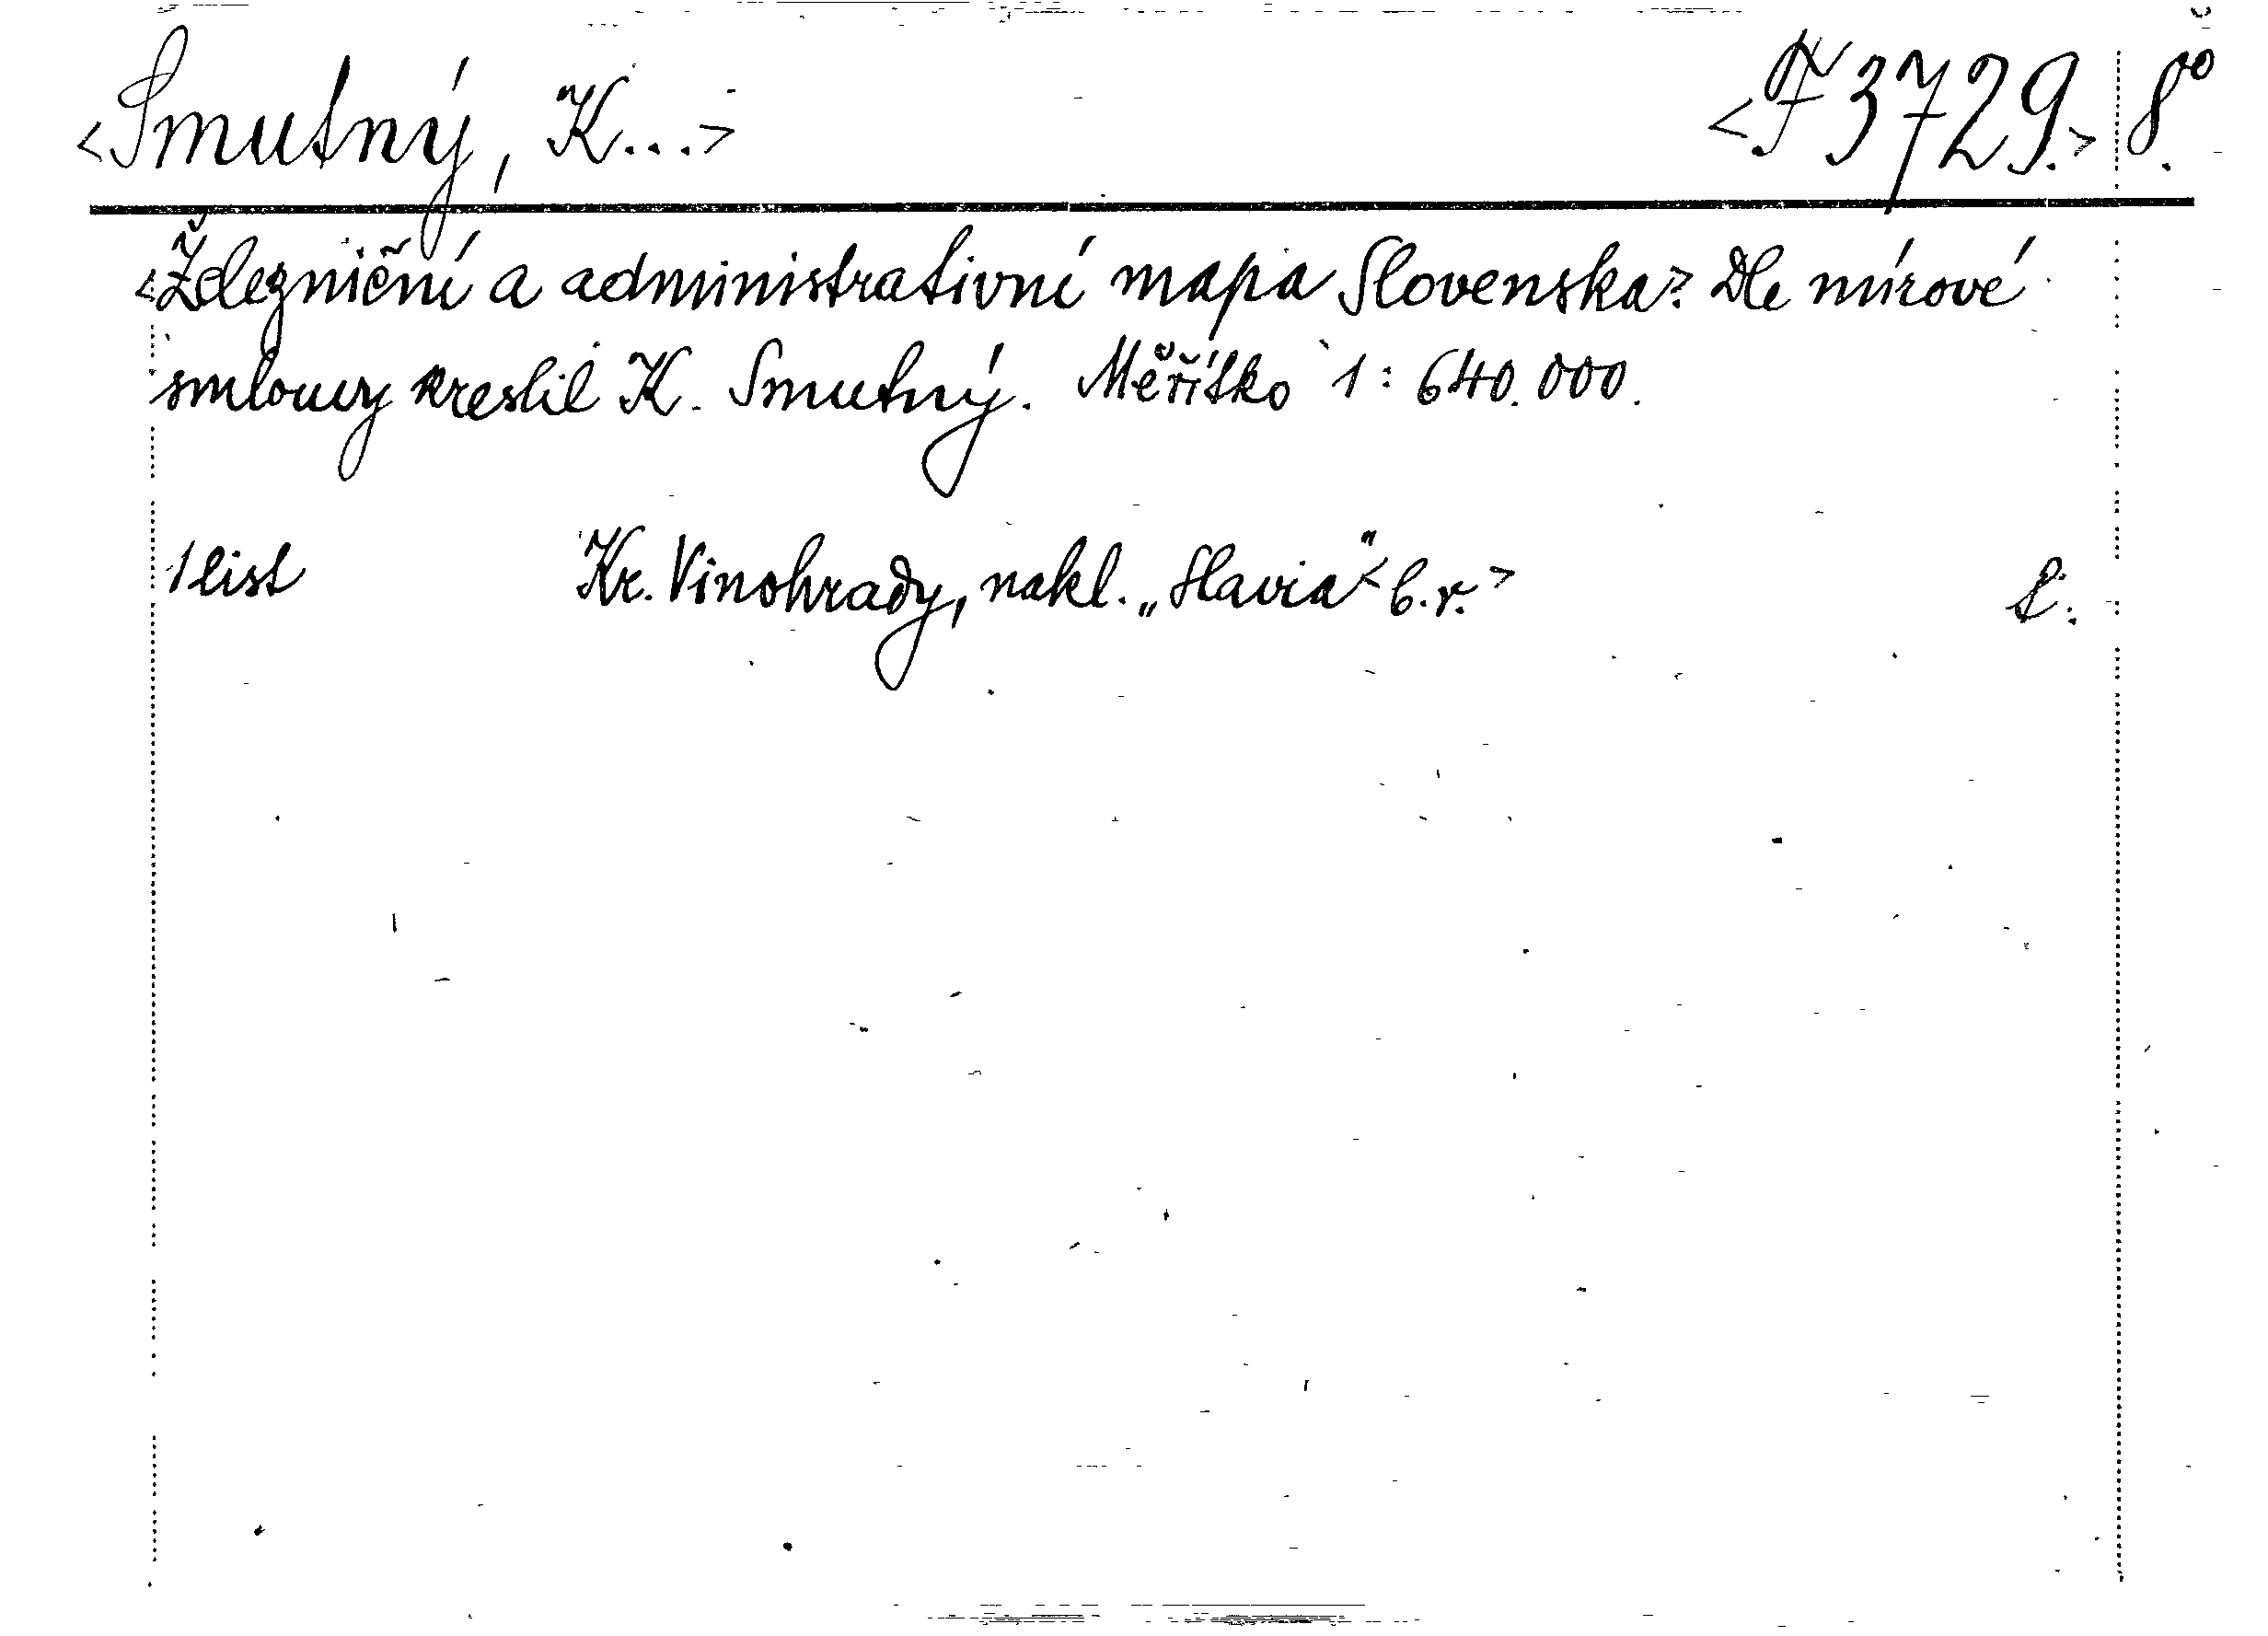 <Smutný, K...> <F 3729.> 8°.
<Železniční a administrativní mapa Slovenska> Dle mírové
smlouvy kreslil K. Smutný. Měřítko 1 : 640.000.
1 list Kr. Vinohrady, nakl. „Slavia“ <b.r.>